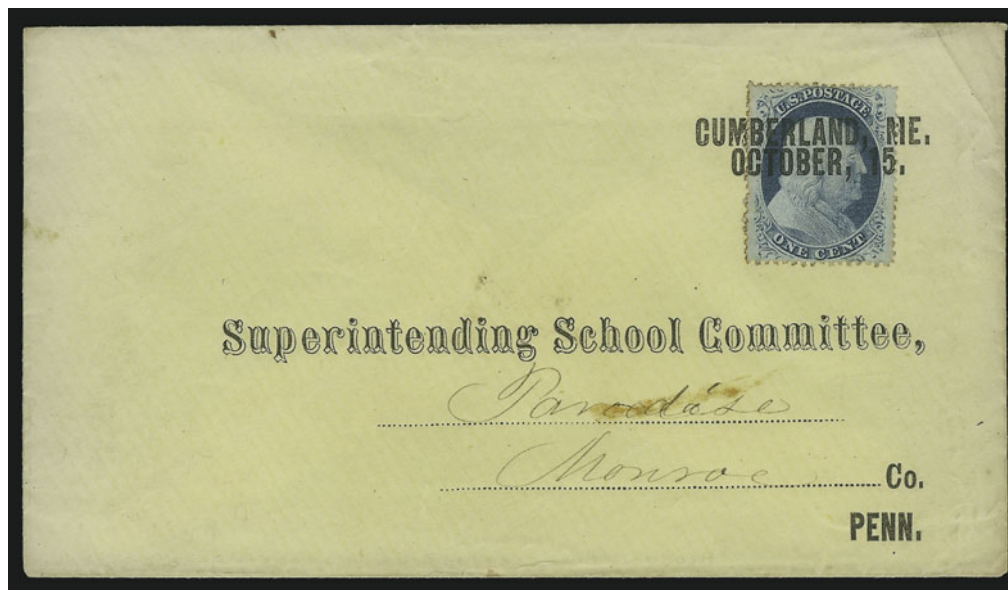 U.S. POSTAGE
CUMBERLAND, ME.
OCTOBER, 15.
ONE CENT
Superintending School Committee,
Paradise
Monroe Co.
PENN.